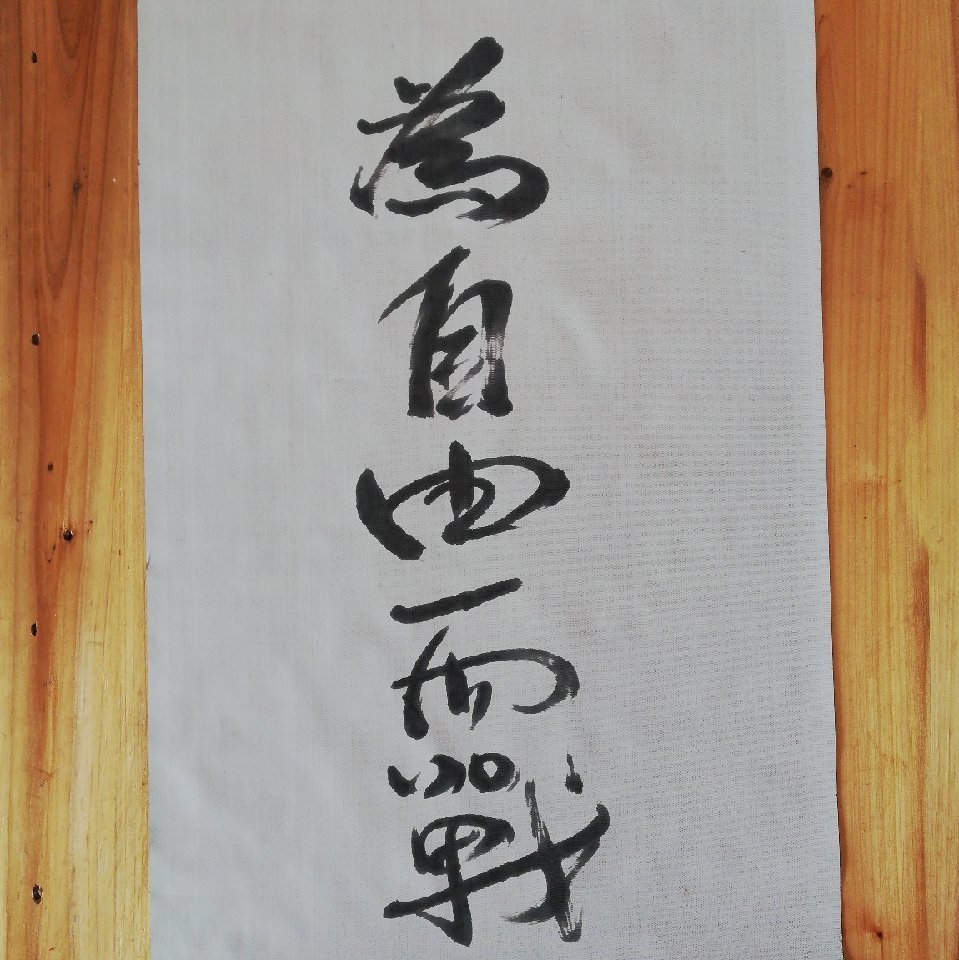 為自由而戰